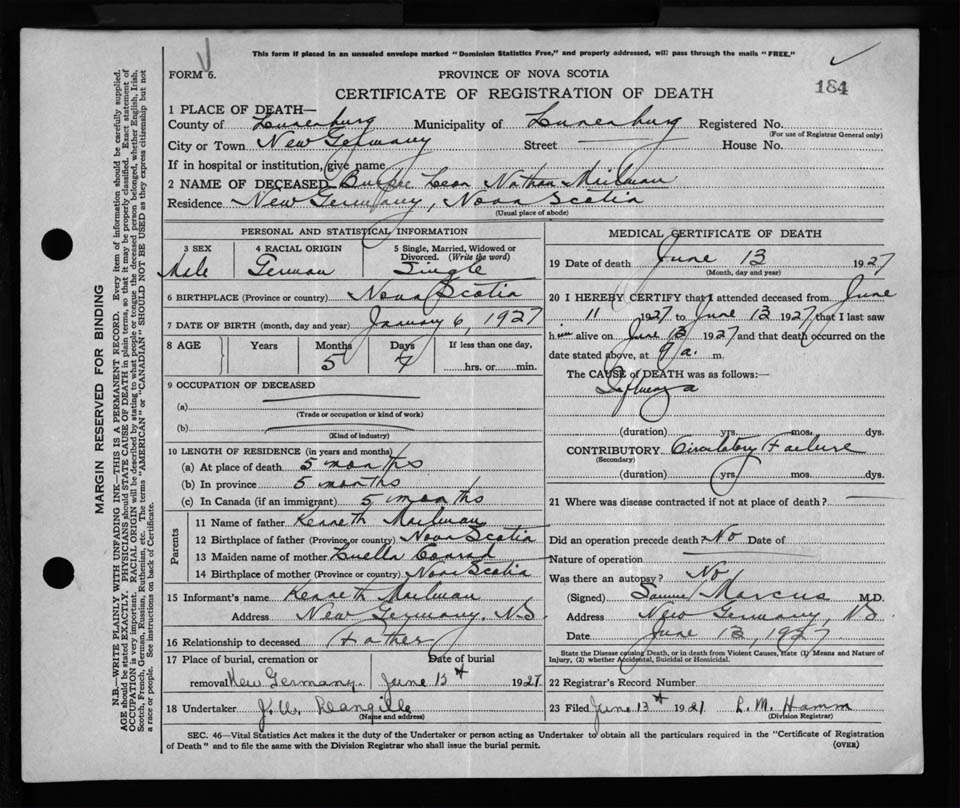 This form if placed in an unsealed envelope marked "Dominion Statistics Free," and properly addressed, will pass through the mails "FREE."
FORM 6.
PROVINCE OF NOVA SCOTIA
184
CERTIFICATE OF REGISTRATION OF DEATH
1 PLACE OF DEATH—
County of Lunenburg Municipality of Lunenburg Registered No.
(For use of Registrar General only)
City or Town New Germany Street House No.
If in hospital or institution, give name
2 NAME OF DECEASED Leon Nathan Mailman
Residence New Germany, Nova Scotia
(Usual place of abode)
PERSONAL AND STATISTICAL INFORMATION
3 SEX 4 RACIAL ORIGIN 5 Single, Married, Widowed or Divorced. (Write the word)
Male German Single
6 BIRTHPLACE (Province or country) Nova Scotia
7 DATE OF BIRTH (month, day and year) January 6, 1927
8 AGE Years Months Days If less than one day,
5 7 hrs. or min.
9 OCCUPATION OF DECEASED
(a)
(Trade or occupation or kind of work)
(b)
(Kind of industry)
10 LENGTH OF RESIDENCE (in years and months)
(a) At place of death 5 months
(b) In province 5 months
(c) In Canada (if an immigrant) 5 months
Parents
11 Name of father Kenneth Mailman
12 Birthplace of father (Province or country) Nova Scotia
13 Maiden name of mother Luella Conrad
14 Birthplace of mother (Province or country) Nova Scotia
15 Informant's name Kenneth Mailman
Address New Germany, N.S
16 Relationship to deceased Father
17 Place of burial, cremation or Date of burial
removal New Germany. June 13th 1927
18 Undertaker J.W.
(Name and address)
MEDICAL CERTIFICATE OF DEATH
19 Date of death June 13 1927
(Month, day and year)
20 I HEREBY CERTIFY that I attended deceased from June
11 1927 to June 13 1927 that I last saw
him alive on June 13 1927 and that death occurred on the
date stated above, at 9 a. m.
The CAUSE of DEATH was as follows:—
Influenza
(duration) yrs. mos. dys.
CONTRIBUTORY Circulatory Failure
(Secondary)
(duration) yrs. mos. dys.
21 Where was disease contracted if not at place of death?
Did an operation precede death? No Date of
Nature of operation
Was there an autopsy? No
(Signed) Samuel Marcus M.D.
Address New Germany, NS
Date June 13, 1927
State the Disease causing Death, or in death from Violent Causes, State (1) Means and Nature of
Injury, (2) whether Accidental, Suicidal or Homicidal.
22 Registrar's Record Number
23 Filed June 13th 1927 L. M. Hamm
(Division Registrar)
SEC. 46—Vital Statistics Act makes it the duty of the Undertaker or person acting as Undertaker to obtain all the particulars required in the "Certificate of Registration
of Death" and to file the same with the Division Registrar who shall issue the burial permit.
(OVER)
MARGIN RESERVED FOR BINDING
N.B.—WRITE PLAINLY WITH UNFADING INK—THIS IS A PERMANENT RECORD. Every item of information should be carefully supplied.
AGE should be stated EXACTLY. PHYSICIANS should STATE CAUSE OF DEATH in plain terms, so that it may be properly classified. Exact statement of
OCCUPATION is very important. RACIAL ORIGIN will be described by stating to what people or tongue the deceased person belonged, whether English, Irish,
Scotch, French, German, Russian, Ruthenian, etc. The terms "AMERICAN" or "CANADIAN" SHOULD NOT BE USED as they express citizenship but not
a race or people. See instructions on back of Certificate.